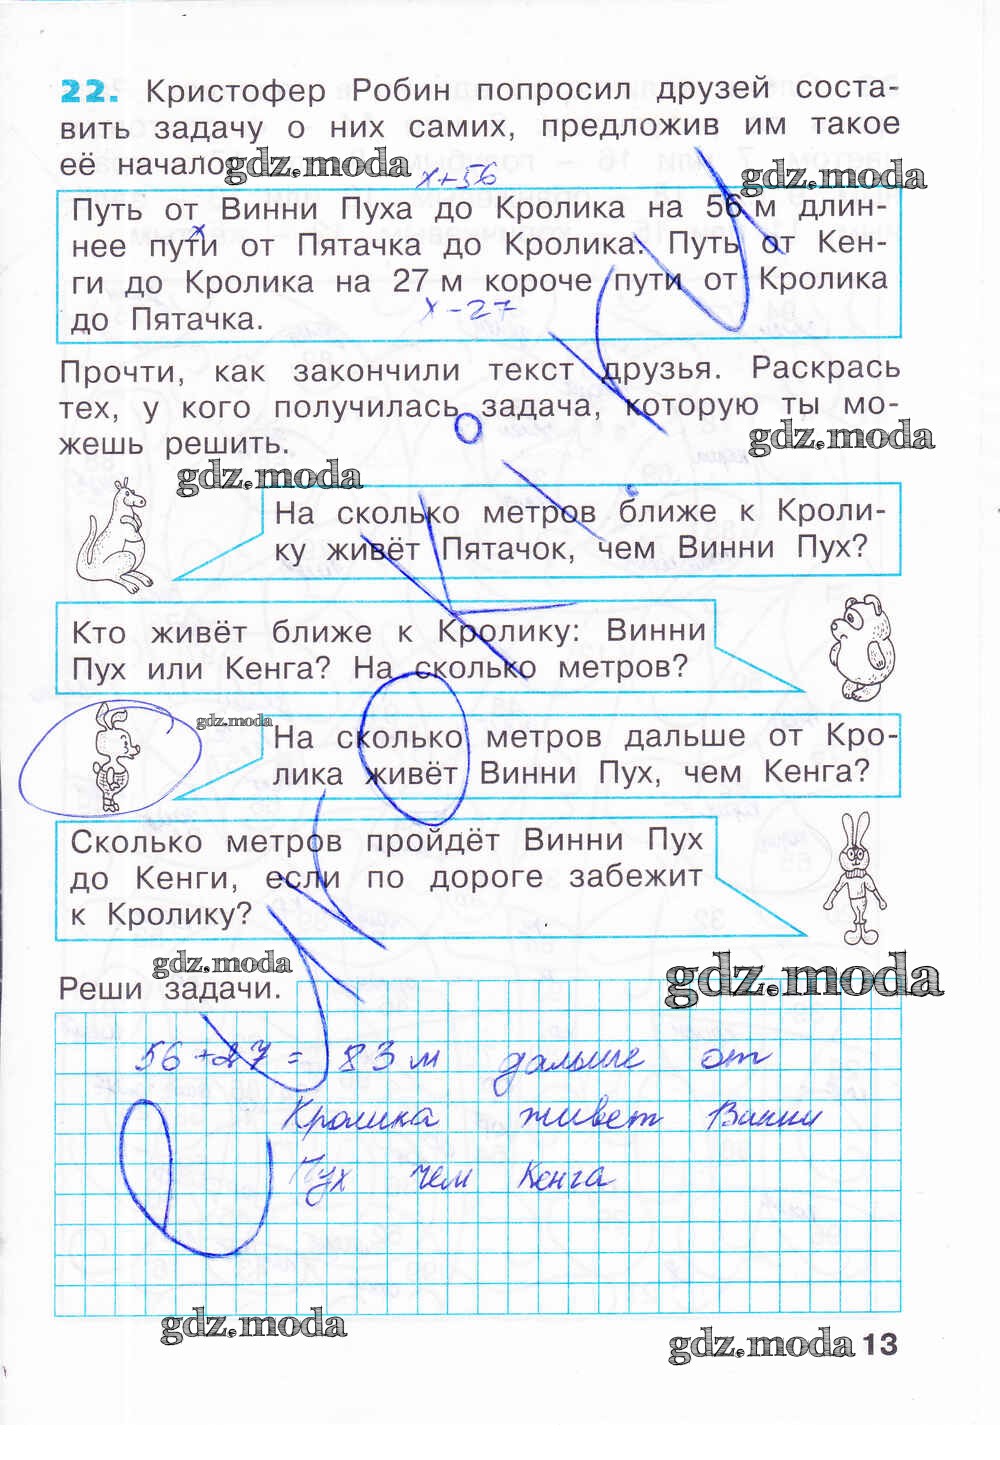 22. Кристофер Робин попросил друзей соста-
вить задачу о них самих, предложив им такое
её начало
gdz.moda
x+56
gdz.moda
Путь от Винни Пуха до Кролика на 56 м длин-
x
нее пути от Пятачка до Кролика. Путь от Кен-
ги до Кролика на 27 м короче пути от Кролика
до Пятачка.
x-27
Прочти, как закончили текст друзья. Раскрась
тех, у кого получилась задача, которую ты мо-
жешь решить.
gdz.moda
gdz.moda
На сколько метров ближе к Кроли-
ку живёт Пятачок, чем Винни Пух?
Кто живёт ближе к Кролику: Винни
Пух или Кенга? На сколько метров?
gdz.moda
На сколько метров дальше от Кро-
лика живёт Винни Пух, чем Кенга?
Сколько метров пройдёт Винни Пух
до Кенги, если по дороге забежит
к Кролику?
gdz.moda
gdz.moda
Реши задачи.
56+27= 83 м дальше от
Кролика живет Винни
Пух чем Кенга
gdz.moda
gdz.moda
13